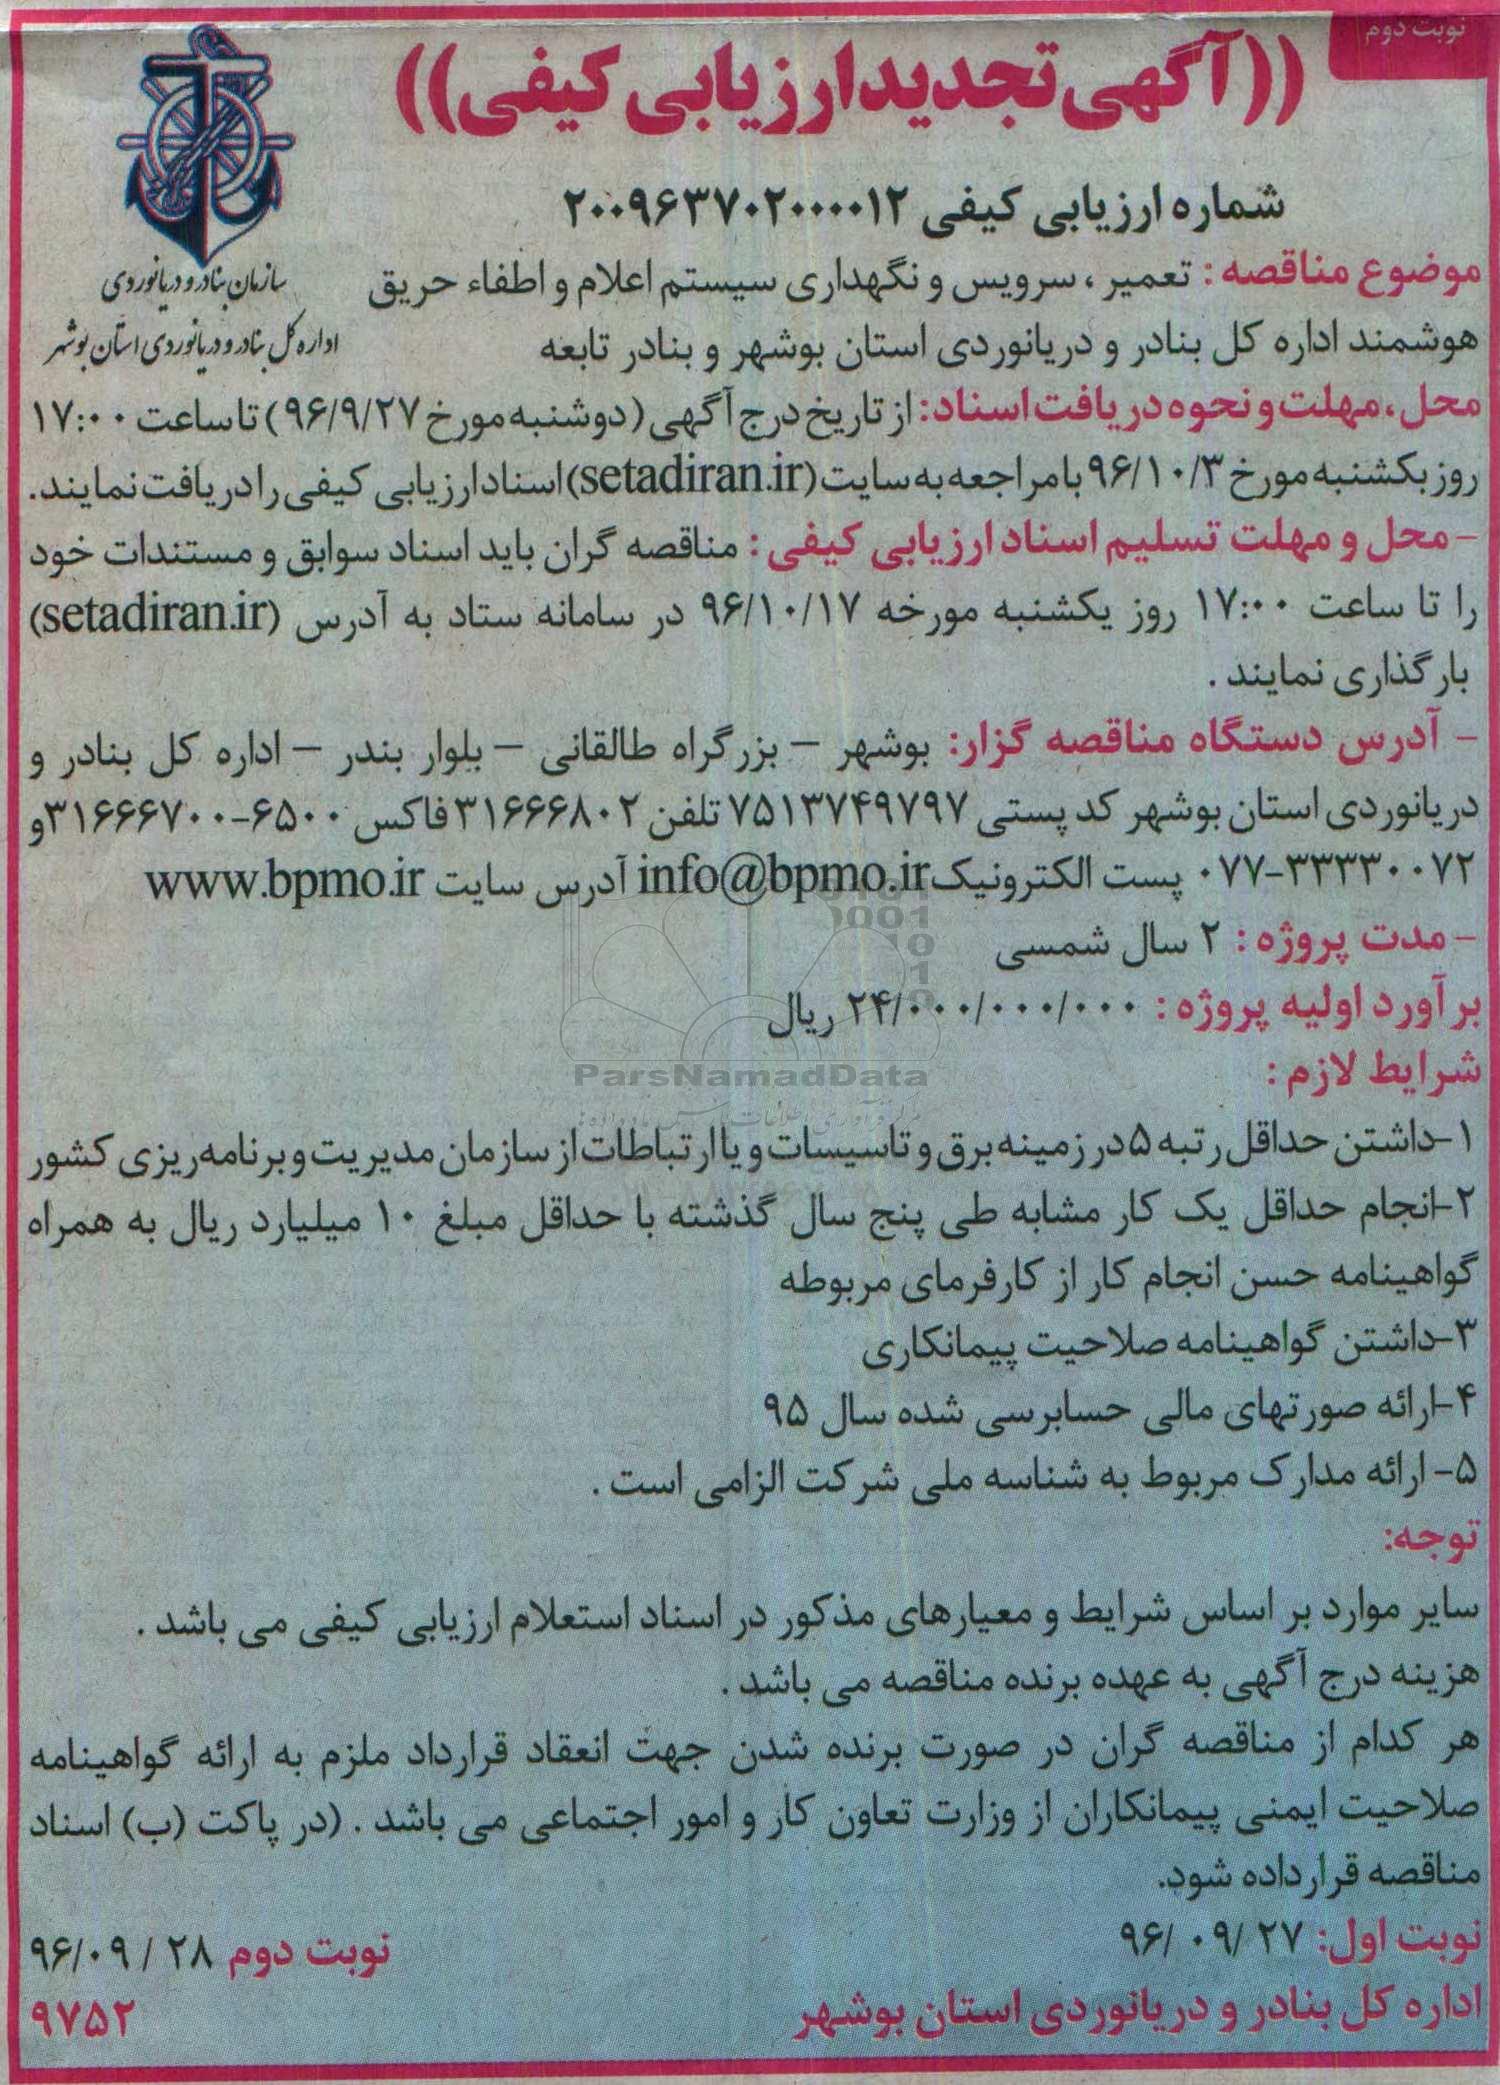 نوبت دوم
((آگهی تجدید ارزیابی کیفی))
سازمان بنادر و دریانوردی
اداره کل بنادر و دریانوردی استان بوشهر
شماره ارزیابی کیفی ۲۰۰۹۶۳۷۰۲۰۰۰۰۱۲
موضوع مناقصه : تعمیر ، سرویس و نگهداری سیستم اعلام و اطفاء حریق
هوشمند اداره کل بنادر و دریانوردی استان بوشهر و بنادر تابعه
محل، مهلت و نحوه دریافت اسناد: از تاریخ درج آگهی (دوشنبه مورخ ۹۶/۹/۲۷) تا ساعت ۱۷:۰۰
روز یکشنبه مورخ ۹۶/۱۰/۳ با مراجعه به سایت (setadiran.ir) اسناد ارزیابی کیفی را دریافت نمایند.
- محل و مهلت تسلیم اسناد ارزیابی کیفی : مناقصه گران باید اسناد سوابق و مستندات خود
را تا ساعت ۱۷:۰۰ روز یکشنبه مورخه ۹۶/۱۰/۱۷ در سامانه ستاد به آدرس (setadiran.ir)
بارگذاری نمایند .
- آدرس دستگاه مناقصه گزار: بوشهر – بزرگراه طالقانی – بلوار بندر – اداره کل بنادر و
دریانوردی استان بوشهر کد پستی ۷۵۱۳۷۴۹۷۹۷ تلفن ۳۱۶۶۶۸۰۲ فاکس ۶۵۰۰-۳۱۶۶۶۷۰۰ و
۰۷۷-۳۳۳۳۰۰۷۲ پست الکترونیک info@bpmo.ir آدرس سایت www.bpmo.ir
- مدت پروژه : ۲ سال شمسی
برآورد اولیه پروژه : ۲۴/۰۰۰/۰۰۰/۰۰۰ ریال
ParsNamadData
شرایط لازم :
۱-داشتن حداقل رتبه ۵ در زمینه برق و تاسیسات و یا ارتباطات از سازمان مدیریت و برنامه ریزی کشور
۲-انجام حداقل یک کار مشابه طی پنج سال گذشته با حداقل مبلغ ۱۰ میلیارد ریال به همراه
گواهینامه حسن انجام کار از کارفرمای مربوطه
۳-داشتن گواهینامه صلاحیت پیمانکاری
۴-ارائه صورتهای مالی حسابرسی شده سال ۹۵
۵- ارائه مدارک مربوط به شناسه ملی شرکت الزامی است .
توجه:
سایر موارد بر اساس شرایط و معیارهای مذکور در اسناد استعلام ارزیابی کیفی می باشد .
هزینه درج آگهی به عهده برنده مناقصه می باشد .
هر کدام از مناقصه گران در صورت برنده شدن جهت انعقاد قرارداد ملزم به ارائه گواهینامه
صلاحیت ایمنی پیمانکاران از وزارت تعاون کار و امور اجتماعی می باشد . (در پاکت (ب) اسناد
مناقصه قرارداده شود.
نوبت اول: ۹۶/ ۰۹/ ۲۷
نوبت دوم ۹۶/۰۹ / ۲۸
اداره کل بنادر و دریانوردی استان بوشهر
۹۷۵۲